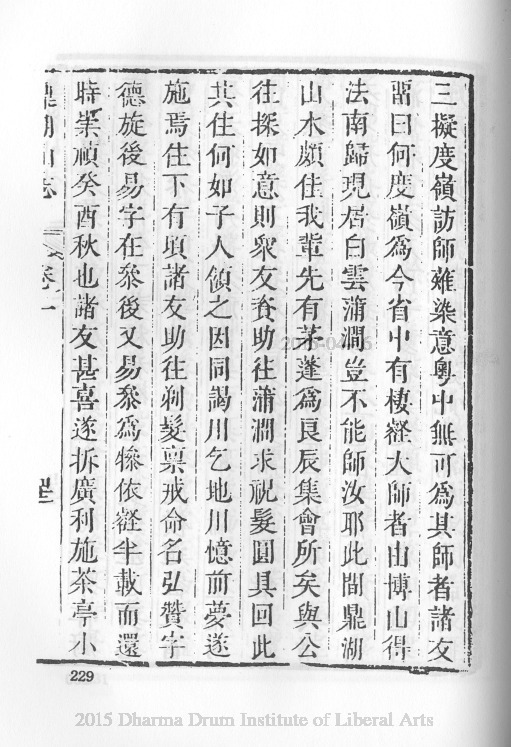 三擬度嶺訪師薙染意粵中無可為其師者諸友
畱曰何度嶺為今省中有棲壑大師者由博山得
法南歸現居白雲蒲澗豈不能師汝耶此間鼎湖
山水頗佳我輩先有茅蓬為良辰集會所矣與公
往探如意則眾友資助往蒲澗求祝髮圓具回此
共住何如子人領之因同謁川乞地川憶前夢遂
施焉住下有頃諸友助往剃髮稟戒命名弘贊字
德旋後易字在叅後又易叅為犙依壑半載而還
時崇禎癸酉秋也諸友甚喜遂拆廣利施茶亭小
鼎湖山志
卷一
229
2015 Dharma Drum Institute of Liberal Arts